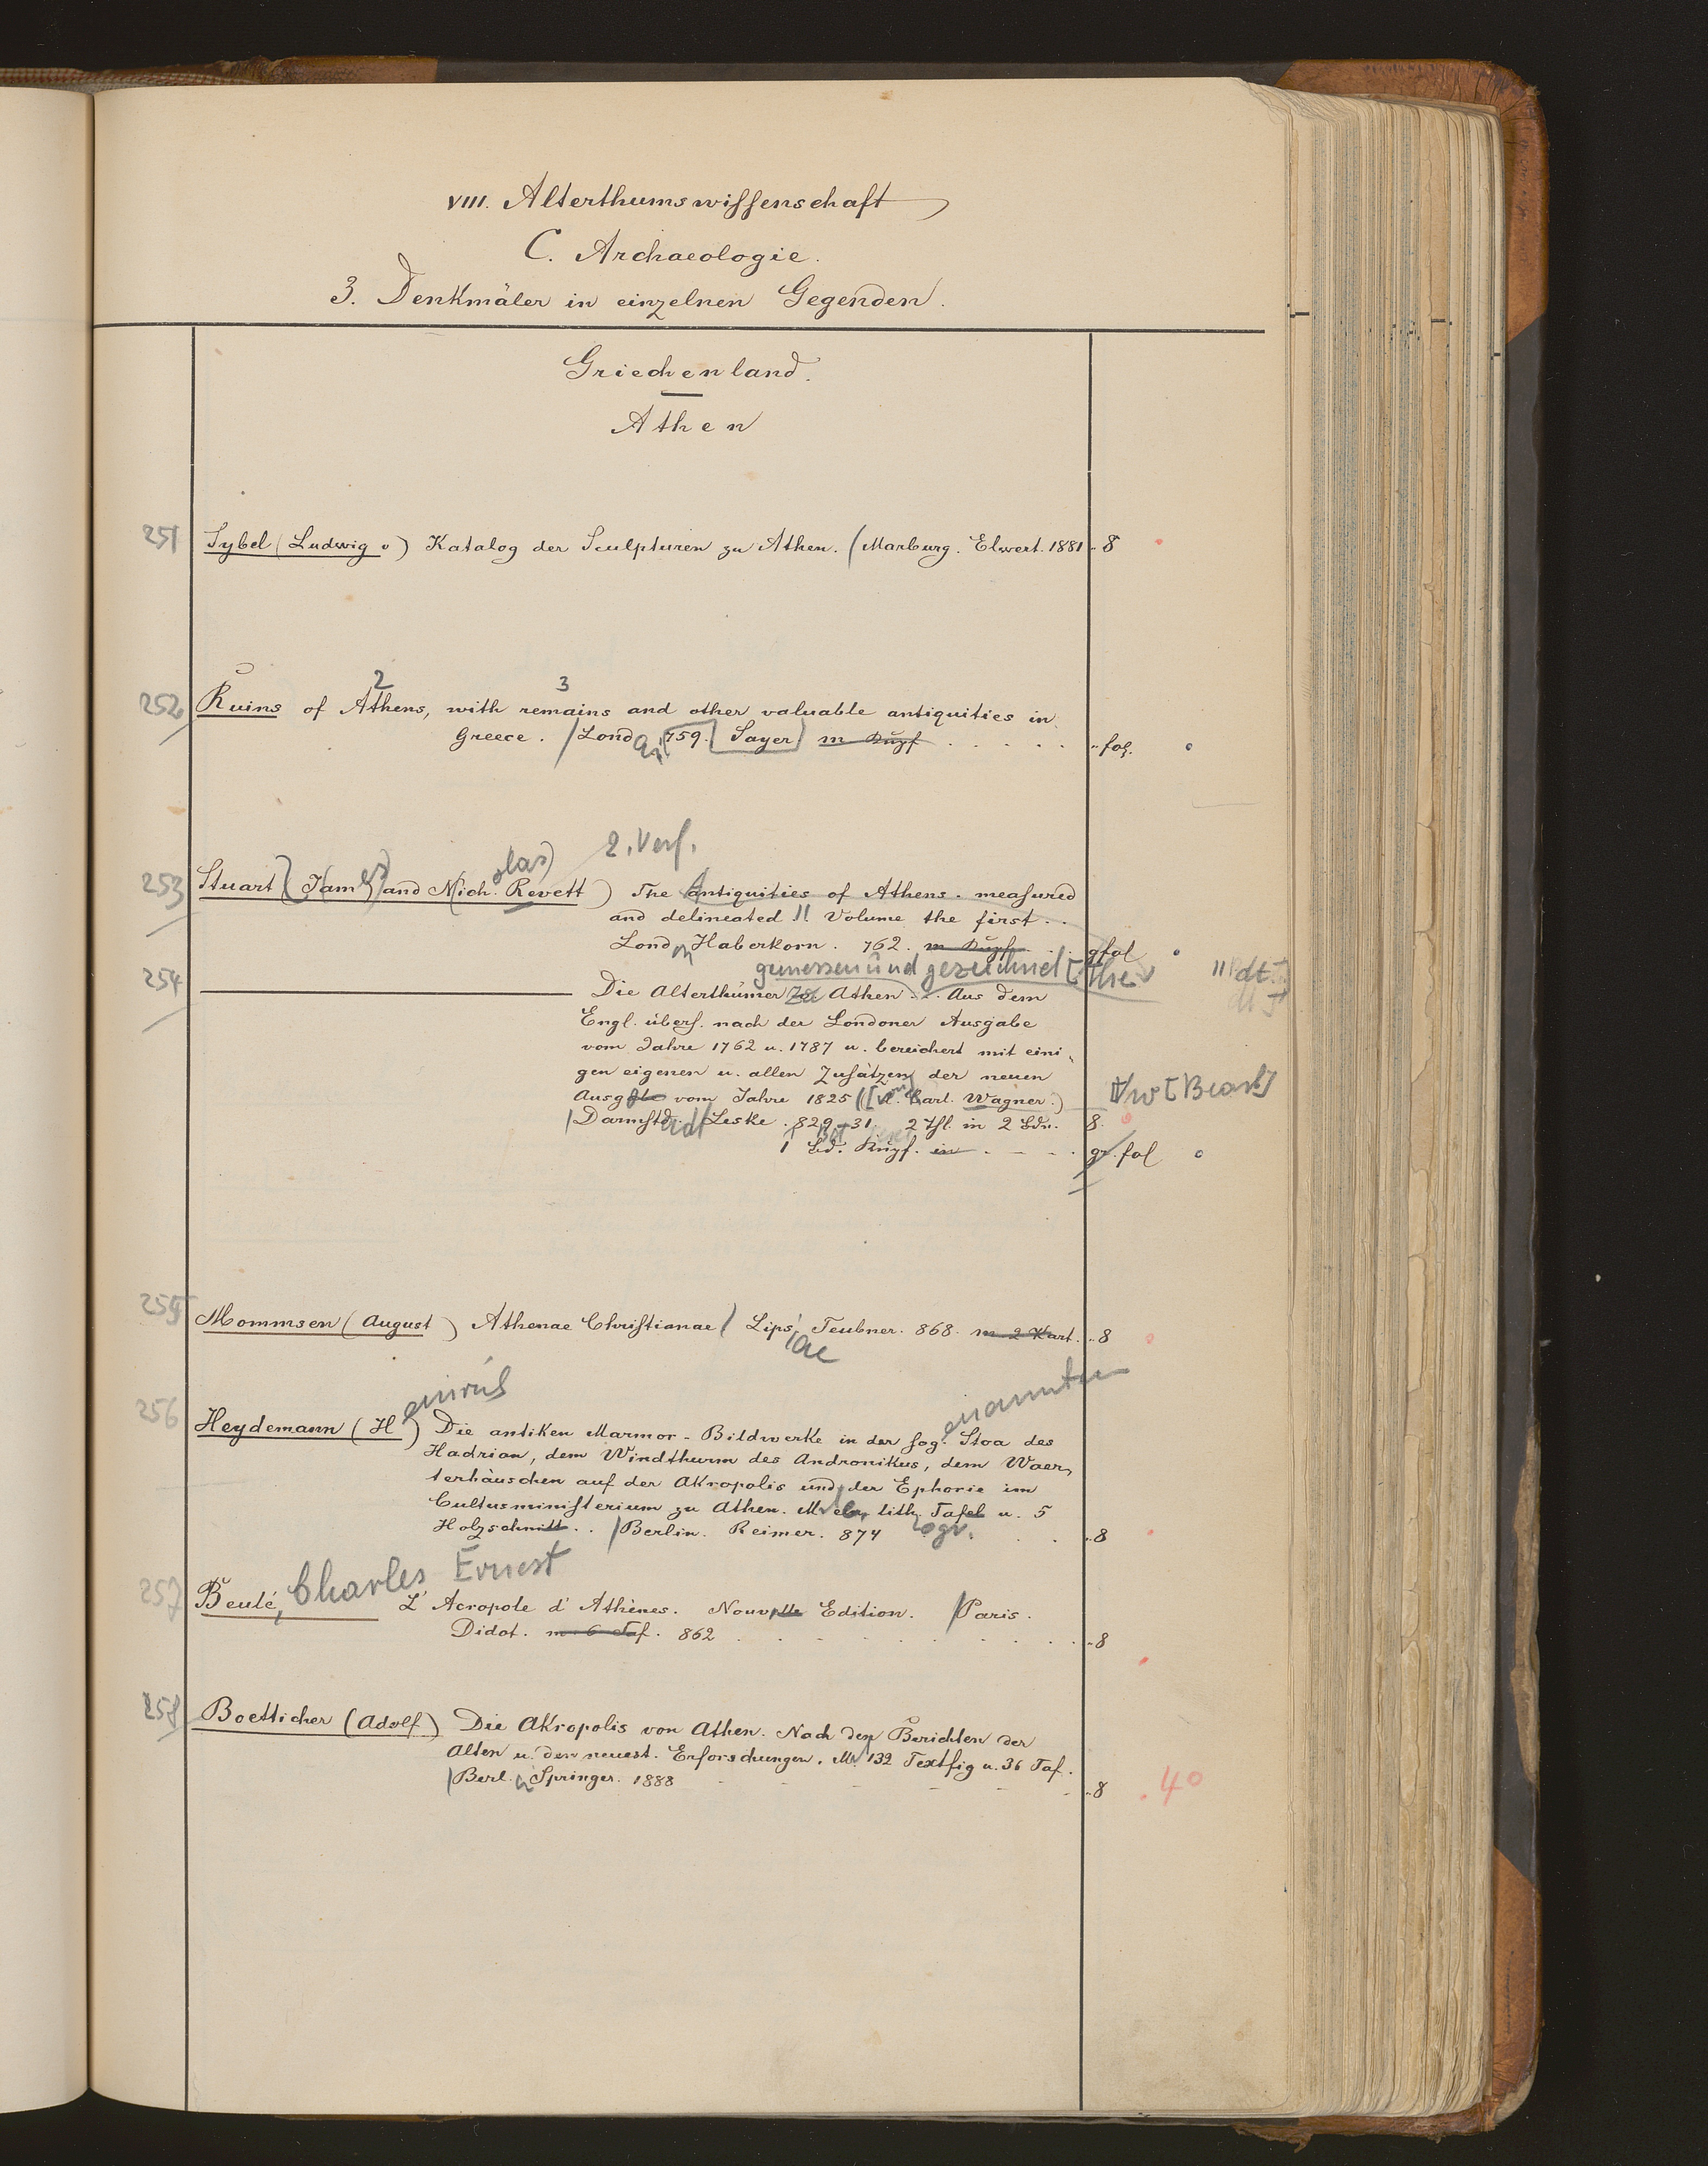 VIII. Alterthumswissenschaft
C. Archaeologie.
3. Denkmäler in einzelnen Gegenden.
Griechenland.
Athen
251 Sybel (Ludwig v) Katalog der Sculpturen zu Athen. (Marburg. Elwert. 1881 8
2 3
252 Ruins of Athens, with remains and other valuable antiquities in
Greece. Lond 759. [Sayer] m Kupf fol.
olas) 2. Verf.
253 Stuart (James) and Nich. Revett) The antiquities of Athens. measured
and delineated Volume the first..
Londn Haberkorn. 762. m Kupf. gfol
gemessen und gezeichnet
254 Die Alterthümer zu Athen... Aus dem
Engl. übers. nach der Londoner Ausgabe
vom Jahre 1762 u. 1787 u. bereichert mit eini-
gen eigenen u. allen Zusätzen der neuen
Ausgabe vom Jahre 1825 ([v. Karl. Wagner.) [Bearb]
Darmstdt Leske. 829-31. 2 Thl. in 2 Bdn. 8.
1 Bd. Kupf. in gr. fol
255 Mommsen (August) Athenae Christianae Lips. iae Teubner. 868. m 2 Kart. 8
einrich enannten
256 Heydemann (H) Die antiken Marmor-Bildwerke in der sog. Stoa des
Hadrian, dem Windthurm des Andronikus, dem Waer-
terhäuschen auf der Akropolis und der Ephorie im
Cultusministerium zu Athen. M lith. Tafel u. 5
Holzschnitt.. Berlin. Reimer. 874 8
Charles Ernest
257 Beulé, L'Acropole d'Athènes. Nouvelle Edition. Paris.
Didot. m. 6 Taf. 862 8
258 Boetticher (Adolf) Die Akropolis von Athen. Nach den Berichten der
Alten u. den neuest. Erforschungen. M. 132 Textfig u. 36 Taf.
Berl. Springer. 1888 8 40